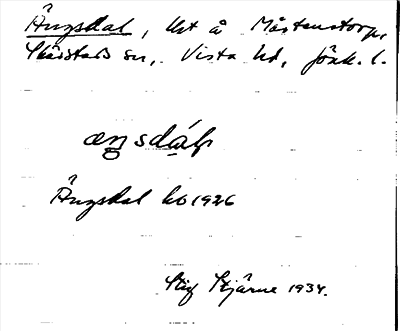 Ängsdal, lht å Mårtenstorp,
Skärstads sn, Vista hd, Jönk. l.
Ängsdal kb 1926
Stig Stjärne 1934.